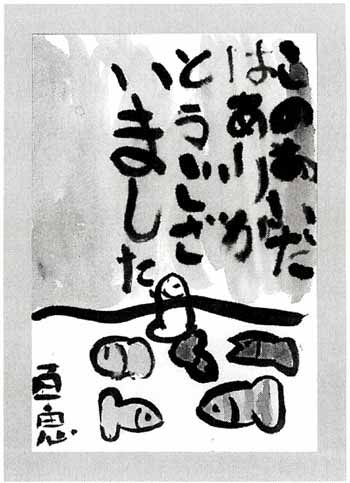 このあいだ
はありが
とうござ
いました
百恵